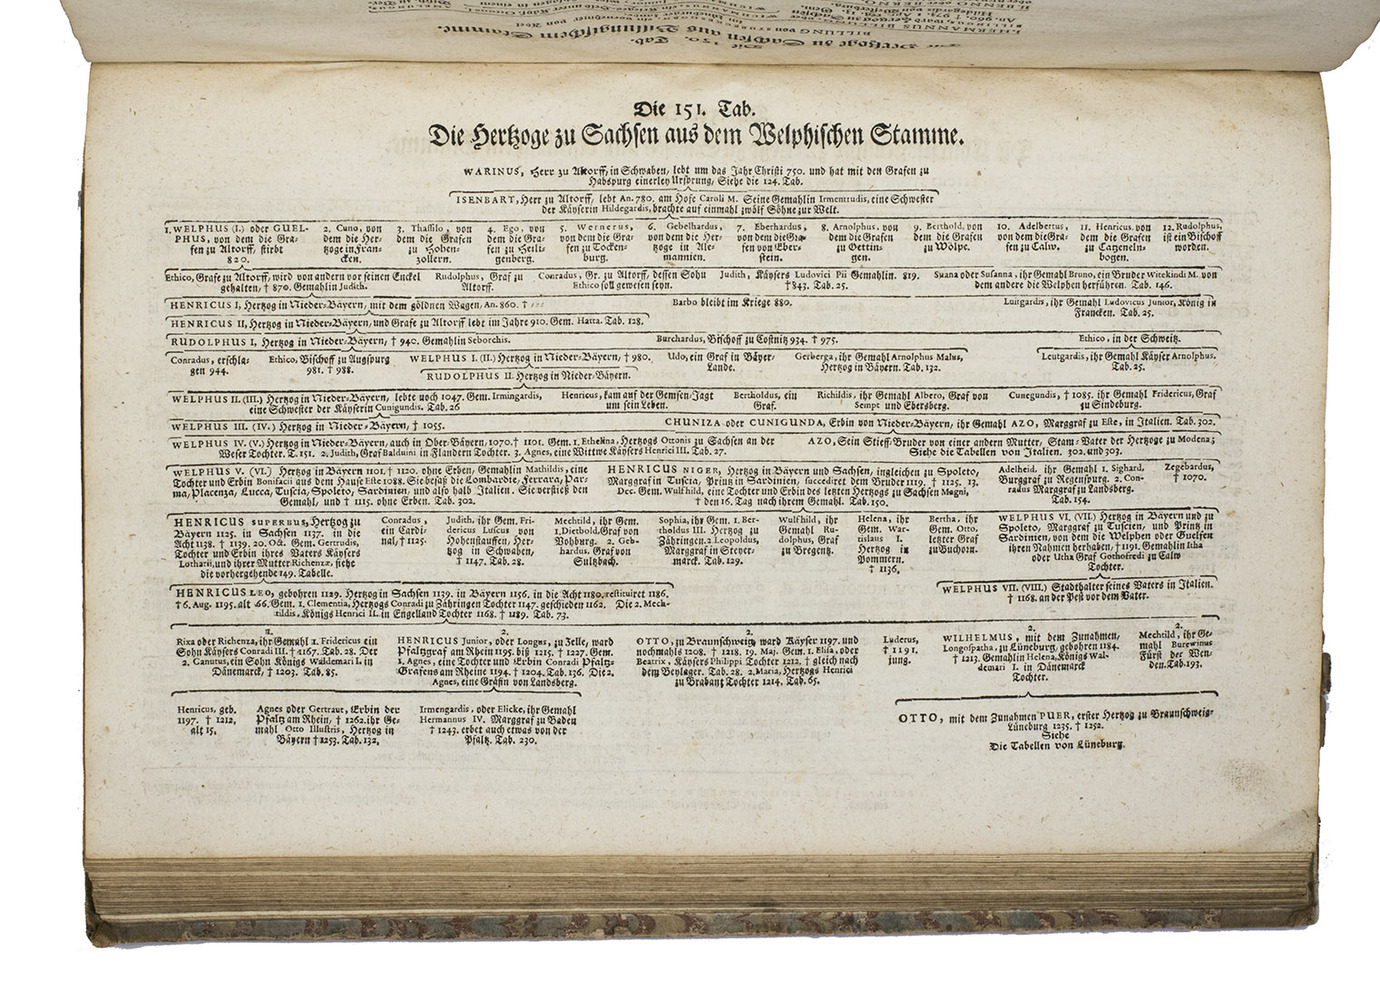 Die 151. Tab.
Die Hertzoge zu Sachsen aus dem Welphischen Stamme.
WARINUS, Herr zu Altorff, in Schwaben, lebt um das Jahr Christi 750. und hat mit den Grafen zu
Habspurg einerley Ursprung, Siehe die 124. Tab.
ISENBART, Herr zu Altorff/ lebt An. 780. am Hofe Caroli M. Seine Gemahlin Irmentrudis, eine Schwester
der Käyserin Hildegardis, brachte auf einmahl zwölf Söhne zur Welt.
1. WELPHUS (I.) oder GUEL-
PHUS, von dem die Gra-
fen zu Altorff, stirbt
820.
2. Cuno, von
dem die Her-
tzoge in Fran-
cken.
3. Thassilo, von
dem die Grafen
zu Hohen-
zollern.
4. Ego, von
dem die Gra-
fen zu Heili-
genberg.
5. Wernerus,
von dem die Gra-
fen zu Tocken-
burg.
6. Gebelhardus,
von dem die Her-
tzoge in Ale-
mannien.
7. Eberhardus,
von dem die Gra-
fen von Eber-
stein.
8. Arnolphus, von
dem die Grafen
zu Oettin-
gen.
9. Berthold, von
dem die Grafen
zu Wolpe.
10. Adelbertus,
von dem die Gra-
fen zu Calw.
11. Henricus, von
dem die Grafen
zu Catzeneln-
bogen.
12. Rudolphus,
ist ein Bischoff
worden.
Ethico, Grafe zu Altorff, wird von andern vor seinen Enckel
gehalten, † 870. Gemahlin Judith.
Rudolphus, Graf zu
Altorff.
Conradus, Gr. zu Altorff, dessen Sohn
Ethico soll gewesen seyn.
Judith, Käysers Ludovici Pii Gemahlin. 819.
† 843. Tab. 25.
Suana oder Susanna, ihr Gemahl Bruno, ein Bruder Witekindi M. von
dem andere die Welphen herführen. Tab. 146.
HENRICUS I, Hertzog in Nieder-Bäyern, mit dem göldnen Wagen, An. 860. †
Barbo bleibt im Kriege 880.
Luitgardis, ihr Gemahl Ludovicus Junior, König in
Francken. Tab. 25.
HENRICUS II, Hertzog in Nieder-Bäyern, und Grafe zu Altorff lebt im Jahre 910. Gem. Hatta. Tab. 128.
RUDOLPHUS I, Hertzog in Nieder-Bäyern, † 940. Gemahlin Seborchis.
Burchardus, Bischoff zu Costnitz 934. † 975.
Ethico, in der Schweitz.
Conradus, erschla-
gen 944.
Ethico, Bischoff zu Augspurg
981. † 988.
WELPHUS I. (II.) Hertzog in Nieder-Bäyern, † 980.
Udo, ein Graf in Bäyer-
Lande.
Gerberga, ihr Gemahl Arnolphus Malus,
Hertzog in Bäyern. Tab. 132.
Leutgardis, ihr Gemahl Käyser Arnolph.
Tab. 25.
RUDOLPHUS II. Hertzog in Nieder-Bäyern.
WELPHUS II. (III.) Hertzog in Nieder-Bäyern, lebte noch 1047. Gem. Irmingardis,
eine Schwester der Käyserin Cunigundis. Tab. 26
Henricus, kam auf der Gemsen-Jagt
um sein Leben.
Bertholdus, ein
Graf.
Richildis, ihr Gemahl Albero, Graf von
Sempt und Ebersberg.
Cunegundis, † 1085. ihr Gemahl Fridericus, Graf
zu Sindeburg.
WELPHUS III. (IV.) Hertzog in Nieder-Bäyern, † 1055.
CHUNIZA oder CUNIGUNDA, Erbin von Nieder-Bäyern, ihr Gemahl AZO, Marggraf zu Este, in Italien. Tab. 302.
WELPHUS IV. (V.) Hertzog in Nieder-Bäyern, auch in Ober-Bäyern, 1070. † 1101. Gem. 1. Ethelina, Hertzogs Ottonis zu Sachsen an der
Weser Tochter. T. 151. 2. Judith, Graf Balduini in Flandern Tochter. 3. Agnes, eine Wittwe Käysers Henrici III. Tab. 27.
AZO, Sein Stieff-Bruder von einer andern Mutter, Stam-Vater der Hertzoge zu Modena;
Siehe die Tabellen von Italien. 302. und 303.
WELPHUS V. (VI.) Hertzog in Bäyern 1101. † 1120. ohne Erben, Gemahlin Mathildis, eine
Tochter und Erbin Bonifacii aus dem Hause Este 1088. Sie besaß die Lombardie, Ferrara, Par-
ma, Placenza, Lucca, Tuscia, Spoleto, Sardinien, und also halb Italien. Sie verstieß den
Gemahl, und † 1115. ohne Erben. Tab. 302.
HENRICUS NIGER, Hertzog in Bäyern und Sachsen, ingleichen zu Spoleto,
Marggraf in Tuscia, Printz in Sardinien, succediret dem Bruder 1119. † 1125. 13.
Dec. Gem. Wulfhild, eine Tochter und Erbin des letzten Hertzogs zu Sachsen Magni,
† den 16. Tag nach ihrem Gemahl. Tab. 150.
Adelheid, ihr Gemahl 1. Sighard,
Burggraf zu Regenspurg. 2. Con-
radus Marggraf zu Landsberg.
Tab. 154.
Zegebardus,
† 1070.
HENRICUS SUPERBUS, Hertzog zu
Bäyern 1125. in Sachsen 1137. in die
Acht 1138. † 1139. 20. Oct. Gem. Gertrudis,
Tochter und Erbin ihres Vaters Käysers
Lotharii, und ihrer Mutter Richenzæ, siehe
die vorhergehende 149. Tabelle.
Conradus,
ein Cardi-
nal, † 1125.
Judith, ihr Gem. Fri-
dericus Luscus von
Hohenstauffen, Her-
tzog in Schwaben,
† 1147. Tab. 28.
Mechtild, ihr Gem.
1. Diethold, Graf von
Vohburg. 2. Geb-
hardus, Graf von
Sultzbach.
Sophia, ihr Gem. 1. Ber-
tholdus III. Hertzog zu
Zähringen. 2. Leopoldus,
Marggraf in Steyer-
marck. Tab. 129.
Wulfhild, ihr
Gemahl Ru-
dolphus, Graf
zu Bregentz.
Helena, ihr
Gem. War-
tislaus I.
Hertzog in
Pommern.
† 1136.
Bertha, ihr
Gem. Otto,
letzter Graf
zu Buchorn.
WELPHUS VI. (VII.) Hertzog in Bäyern und zu
Spoleto, Marggraf zu Tuscien, und Printz in
Sardinien, von dem die Welphen oder Guelfen
ihren Nahmen herhaben, † 1191. Gemahlin Itha
oder Utha Graf Gothofredi zu Calw
Tochter.
HENRICUS LEO, gebohren 1129. Hertzog in Sachsen 1139. in Bäyern 1156. in die Acht 1180. restituiret 1186.
† 6. Aug. 1195. alt 66. Gem. 1. Clementia, Hertzogs Conradi zu Zähringen Tochter 1147. geschieden 1162. Die 2. Mech-
tildis, Königs Henrici II. in Engelland Tochter 1168. † 1189. Tab. 73.
WELPHUS VII. (VIII.) Stadthalter seines Vaters in Italien.
† 1168. an der Pest vor dem Vater.
1.
Rixa oder Richenza, ihr Gemahl 1. Fridericus ein
Sohn Käysers Conradi III. † 1167. Tab. 28. Der
2. Canutus, ein Sohn Königs Waldemari I. in
Dänemarck, † 1203. Tab. 85.
2.
HENRICUS Junior, oder Longus, zu Zelle, ward
Pfaltzgraf am Rhein 1195. biß 1215. † 1227. Gem.
1. Agnes, eine Tochter und Erbin Conradi Pfaltz-
Grafens am Rheine 1194. † 1204. Tab. 136. Die 2.
Agnes, eine Gräfin von Landsberg.
2.
OTTO, zu Braunschweig ward Käyser 1197. und
nochmahls 1208. † 1218. 19. Maj. Gem. 1. Elisa, oder
Beatrix, Käysers Philippi Tochter 1212. † gleich nach
dem Beylager. Tab. 28. 2. Maria, Hertzogs Henrici
zu Brabant Tochter 1214. Tab. 65.
Luderus,
† 1191.
jung.
2.
WILHELMUS, mit dem Zunahmen,
Longospatha, zu Lüneburg, gebohren 1184.
† 1213. Gemahlin Helena, Königs Wal-
demari I. in Dänemarck
Tochter.
2.
Mechtild, ihr Ge-
mahl Burewinus
Fürst der Wen-
den. Tab. 193.
Henricus, geb.
1197. † 1212,
alt 15.
Agnes oder Gertraut, Erbin der
Pfaltz am Rhein, † 1262. ihr Ge-
mahl Otto Illustris, Hertzog in
Bäyern † 1253. Tab. 132,
Irmengardis, oder Elicke, ihr Gemahl
Hermannus IV. Marggraf zu Baden
† 1243. erbet auch etwas von der
Pfaltz. Tab. 230.
OTTO, mit dem Zunahmen PUER, erster Hertzog zu Braunschweig-
Lüneburg 1235. † 1252.
Siehe
Die Tabellen von Lüneburg.